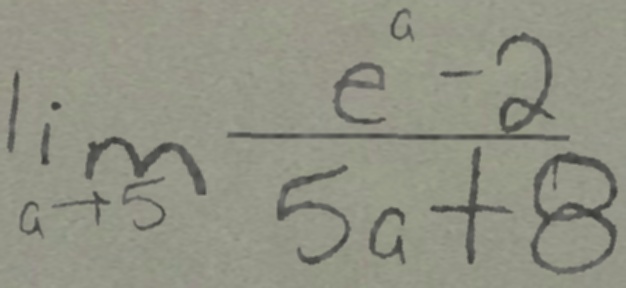 \lim_{a \to 5} \frac{e^a - 2}{5a + 8}